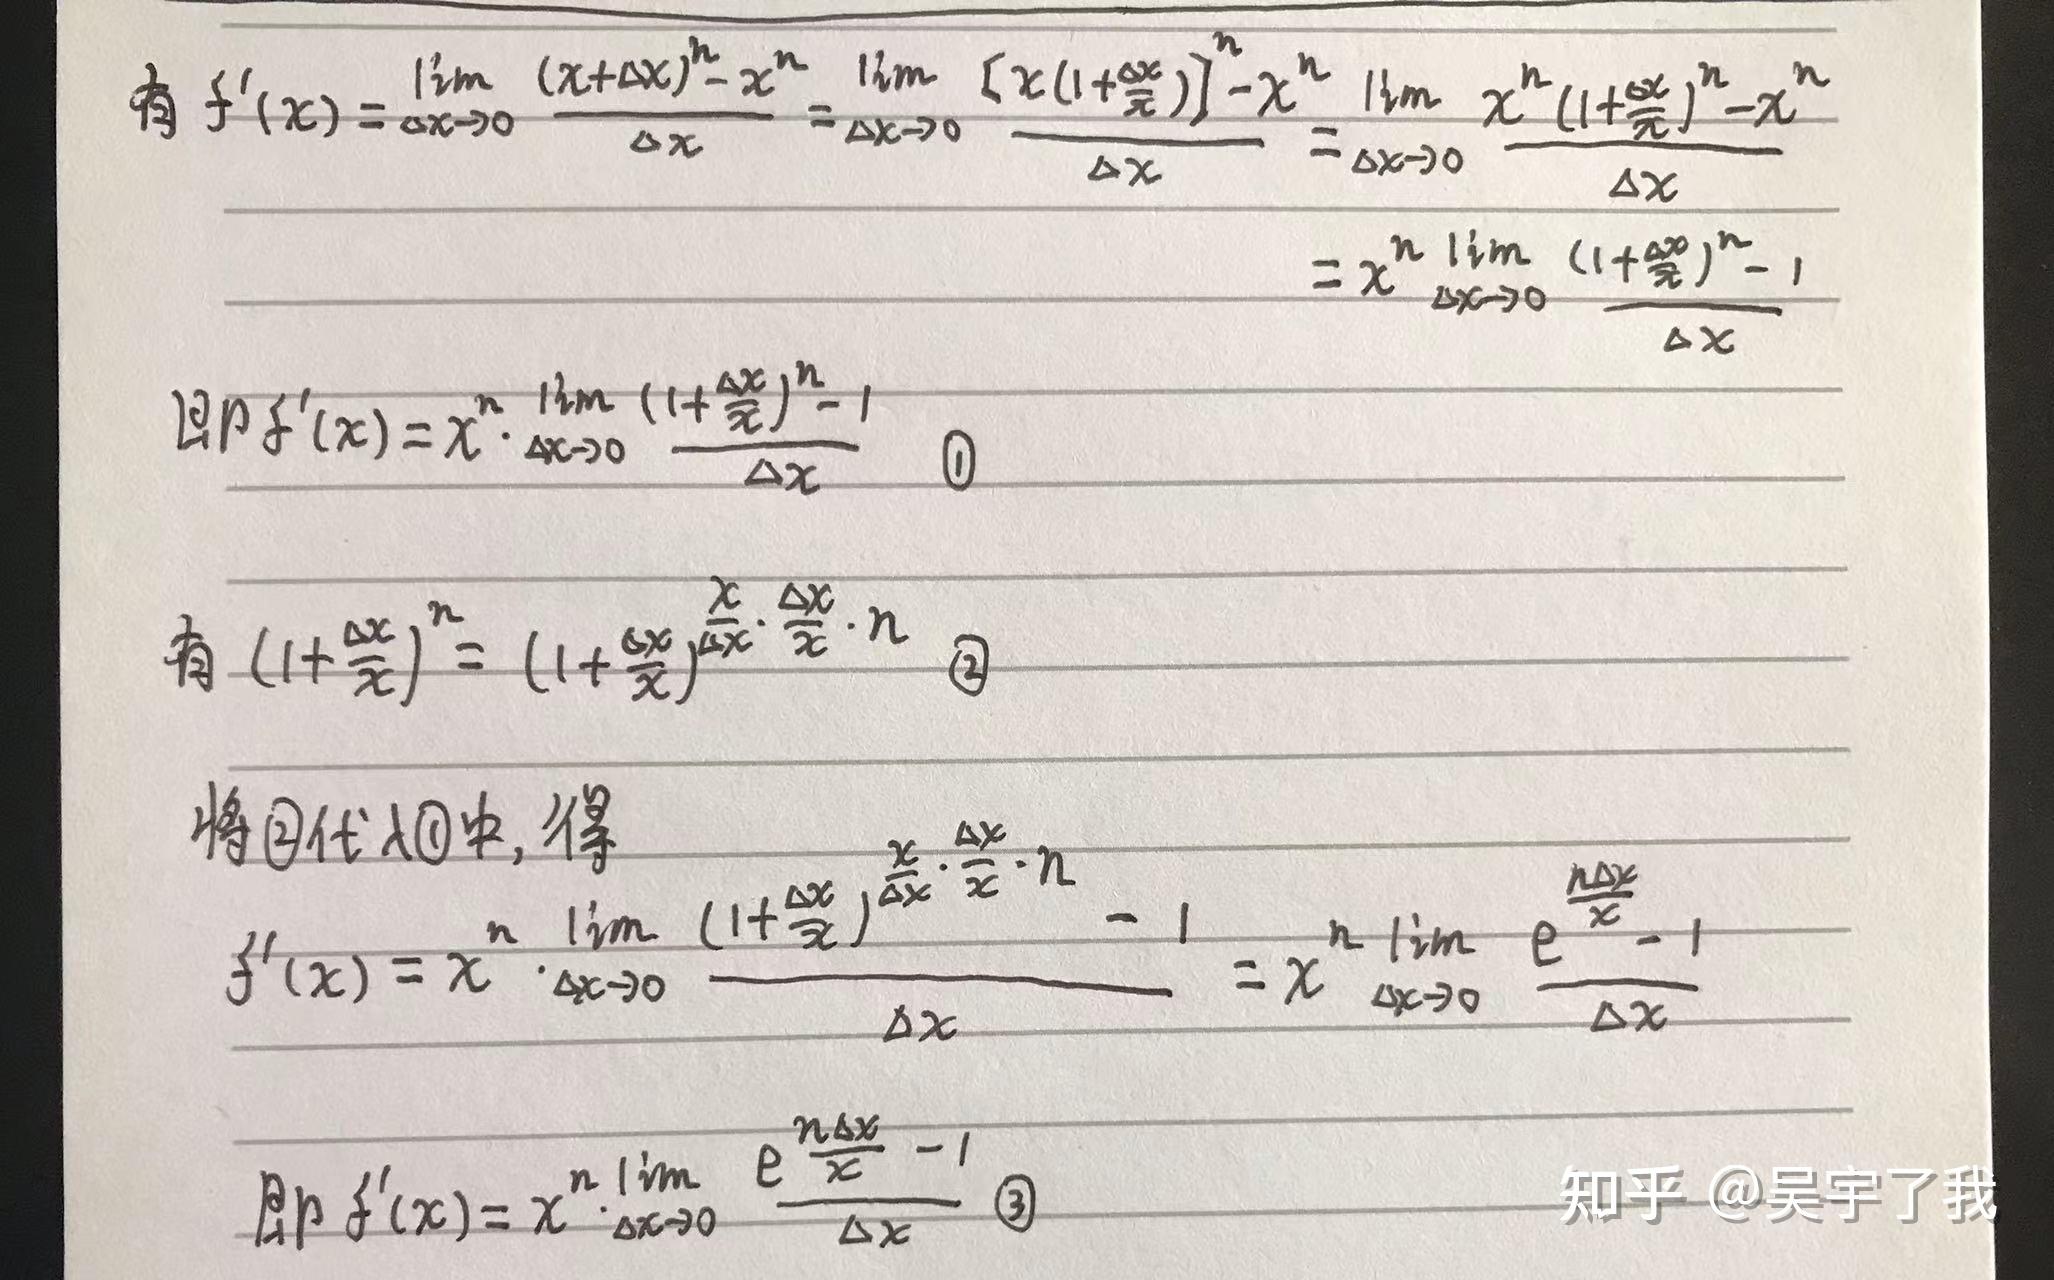 有 f'(x) = lim Δx→0 ((x+Δx)^n - x^n)/Δx = lim Δx→0 ([x(1+Δx/x)]^n - x^n)/Δx = lim Δx→0 (x^n(1+Δx/x)^n - x^n)/Δx
= x^n lim Δx→0 ((1+Δx/x)^n - 1)/Δx
即 f'(x) = x^n · lim Δx→0 ((1+Δx/x)^n - 1)/Δx ①
有 (1+Δx/x)^n = (1+Δx/x)^(x/Δx · Δx/x · n) ②
将②代入①中,得
f'(x) = x^n · lim Δx→0 ((1+Δx/x)^(x/Δx · Δx/x · n) - 1)/Δx = x^n lim Δx→0 (e^(nΔx/x) - 1)/Δx
即 f'(x) = x^n · lim Δx→0 (e^(nΔx/x) - 1)/Δx ③
知乎 @吴宇了我